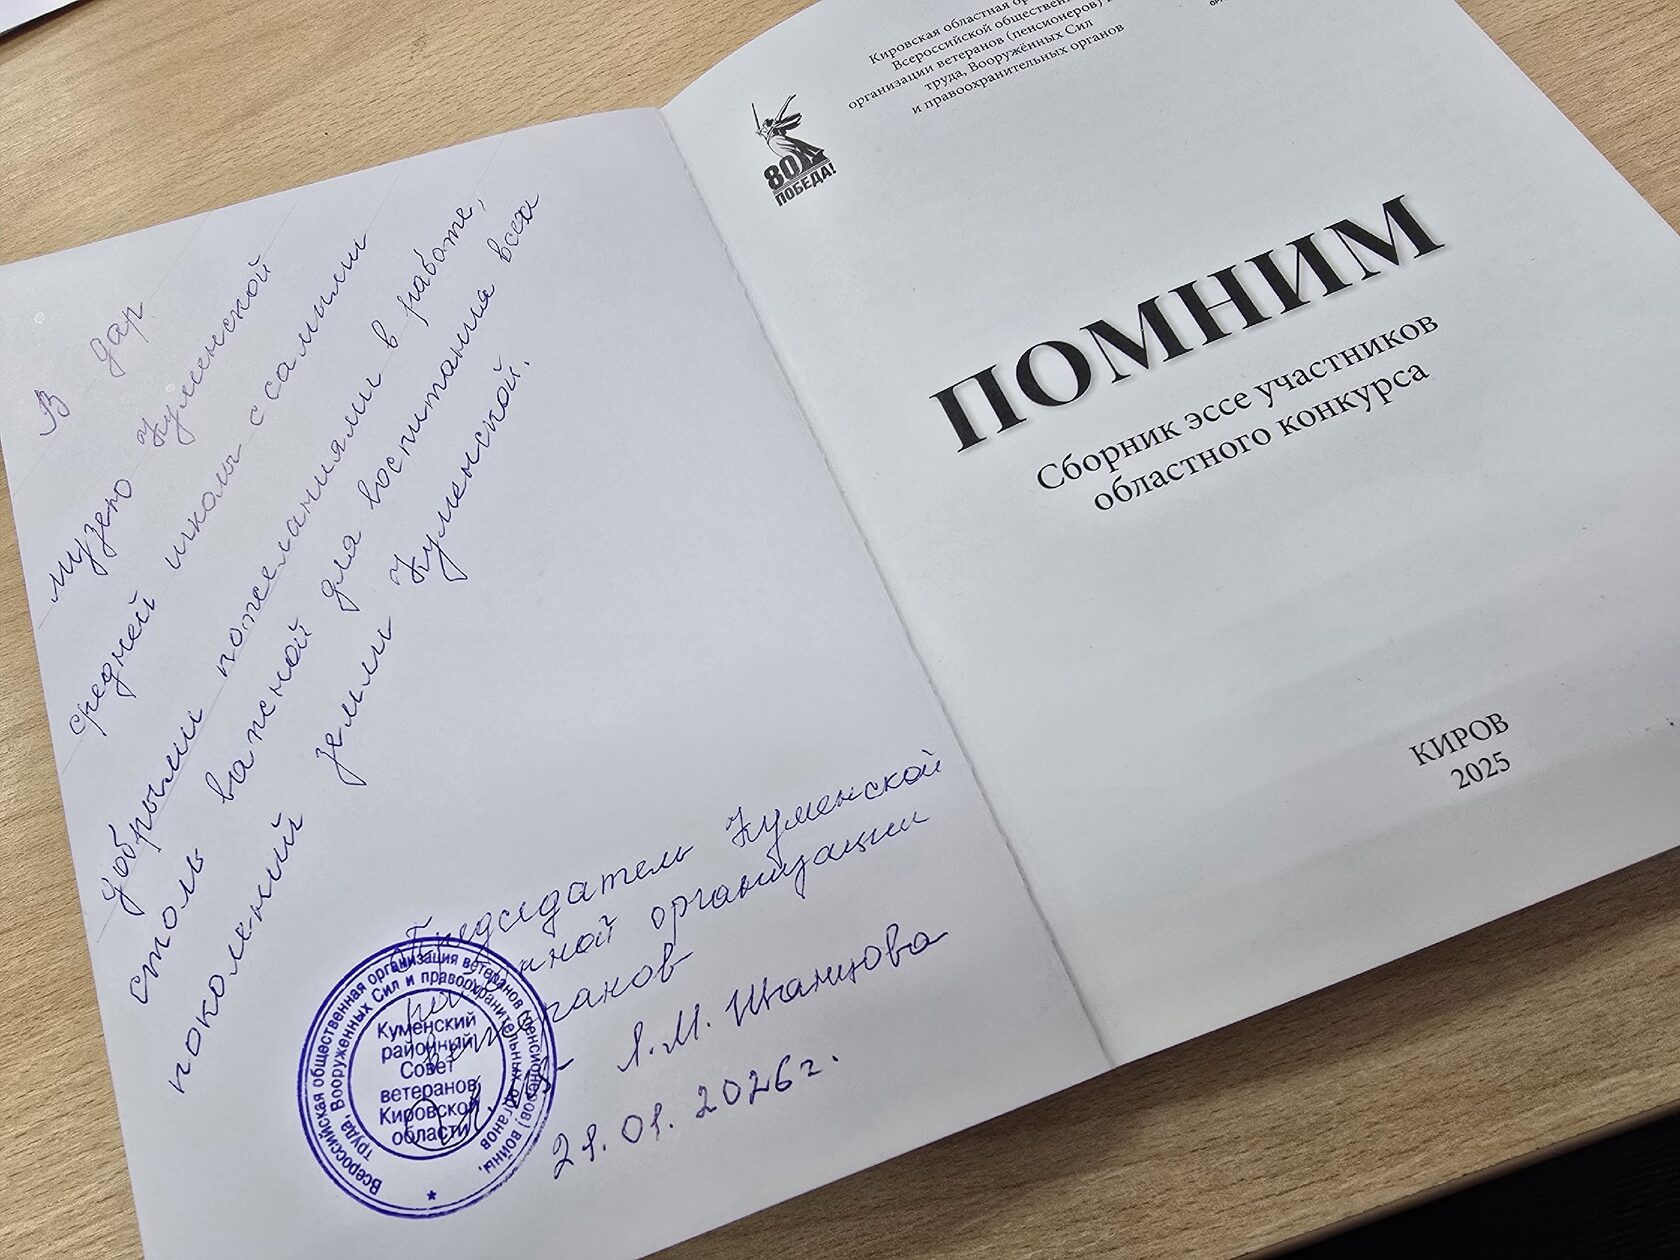 В дар
музею Куменской
средней школы с самыми
добрыми пожеланиями в работе,
столь важной для воспитания всех
поколений земли Куменской.
Председатель Куменской
районной организации
ветеранов
А.М. Шамцова
21.01.2026г.
Всероссийская общественная организация ветеранов (пенсионеров) войны,
труда, Вооруженных Сил и правоохранительных органов
Куменский
районный
Совет
ветеранов
Кировской
области
*
Кировская областная
Всероссийской
организации ветеранов (пенсионеров)
труда, Вооружённых Сил
и правоохранительных органов
80
ПОБЕДА!
ПОМНИМ
Сборник эссе участников
областного конкурса
КИРОВ
2025